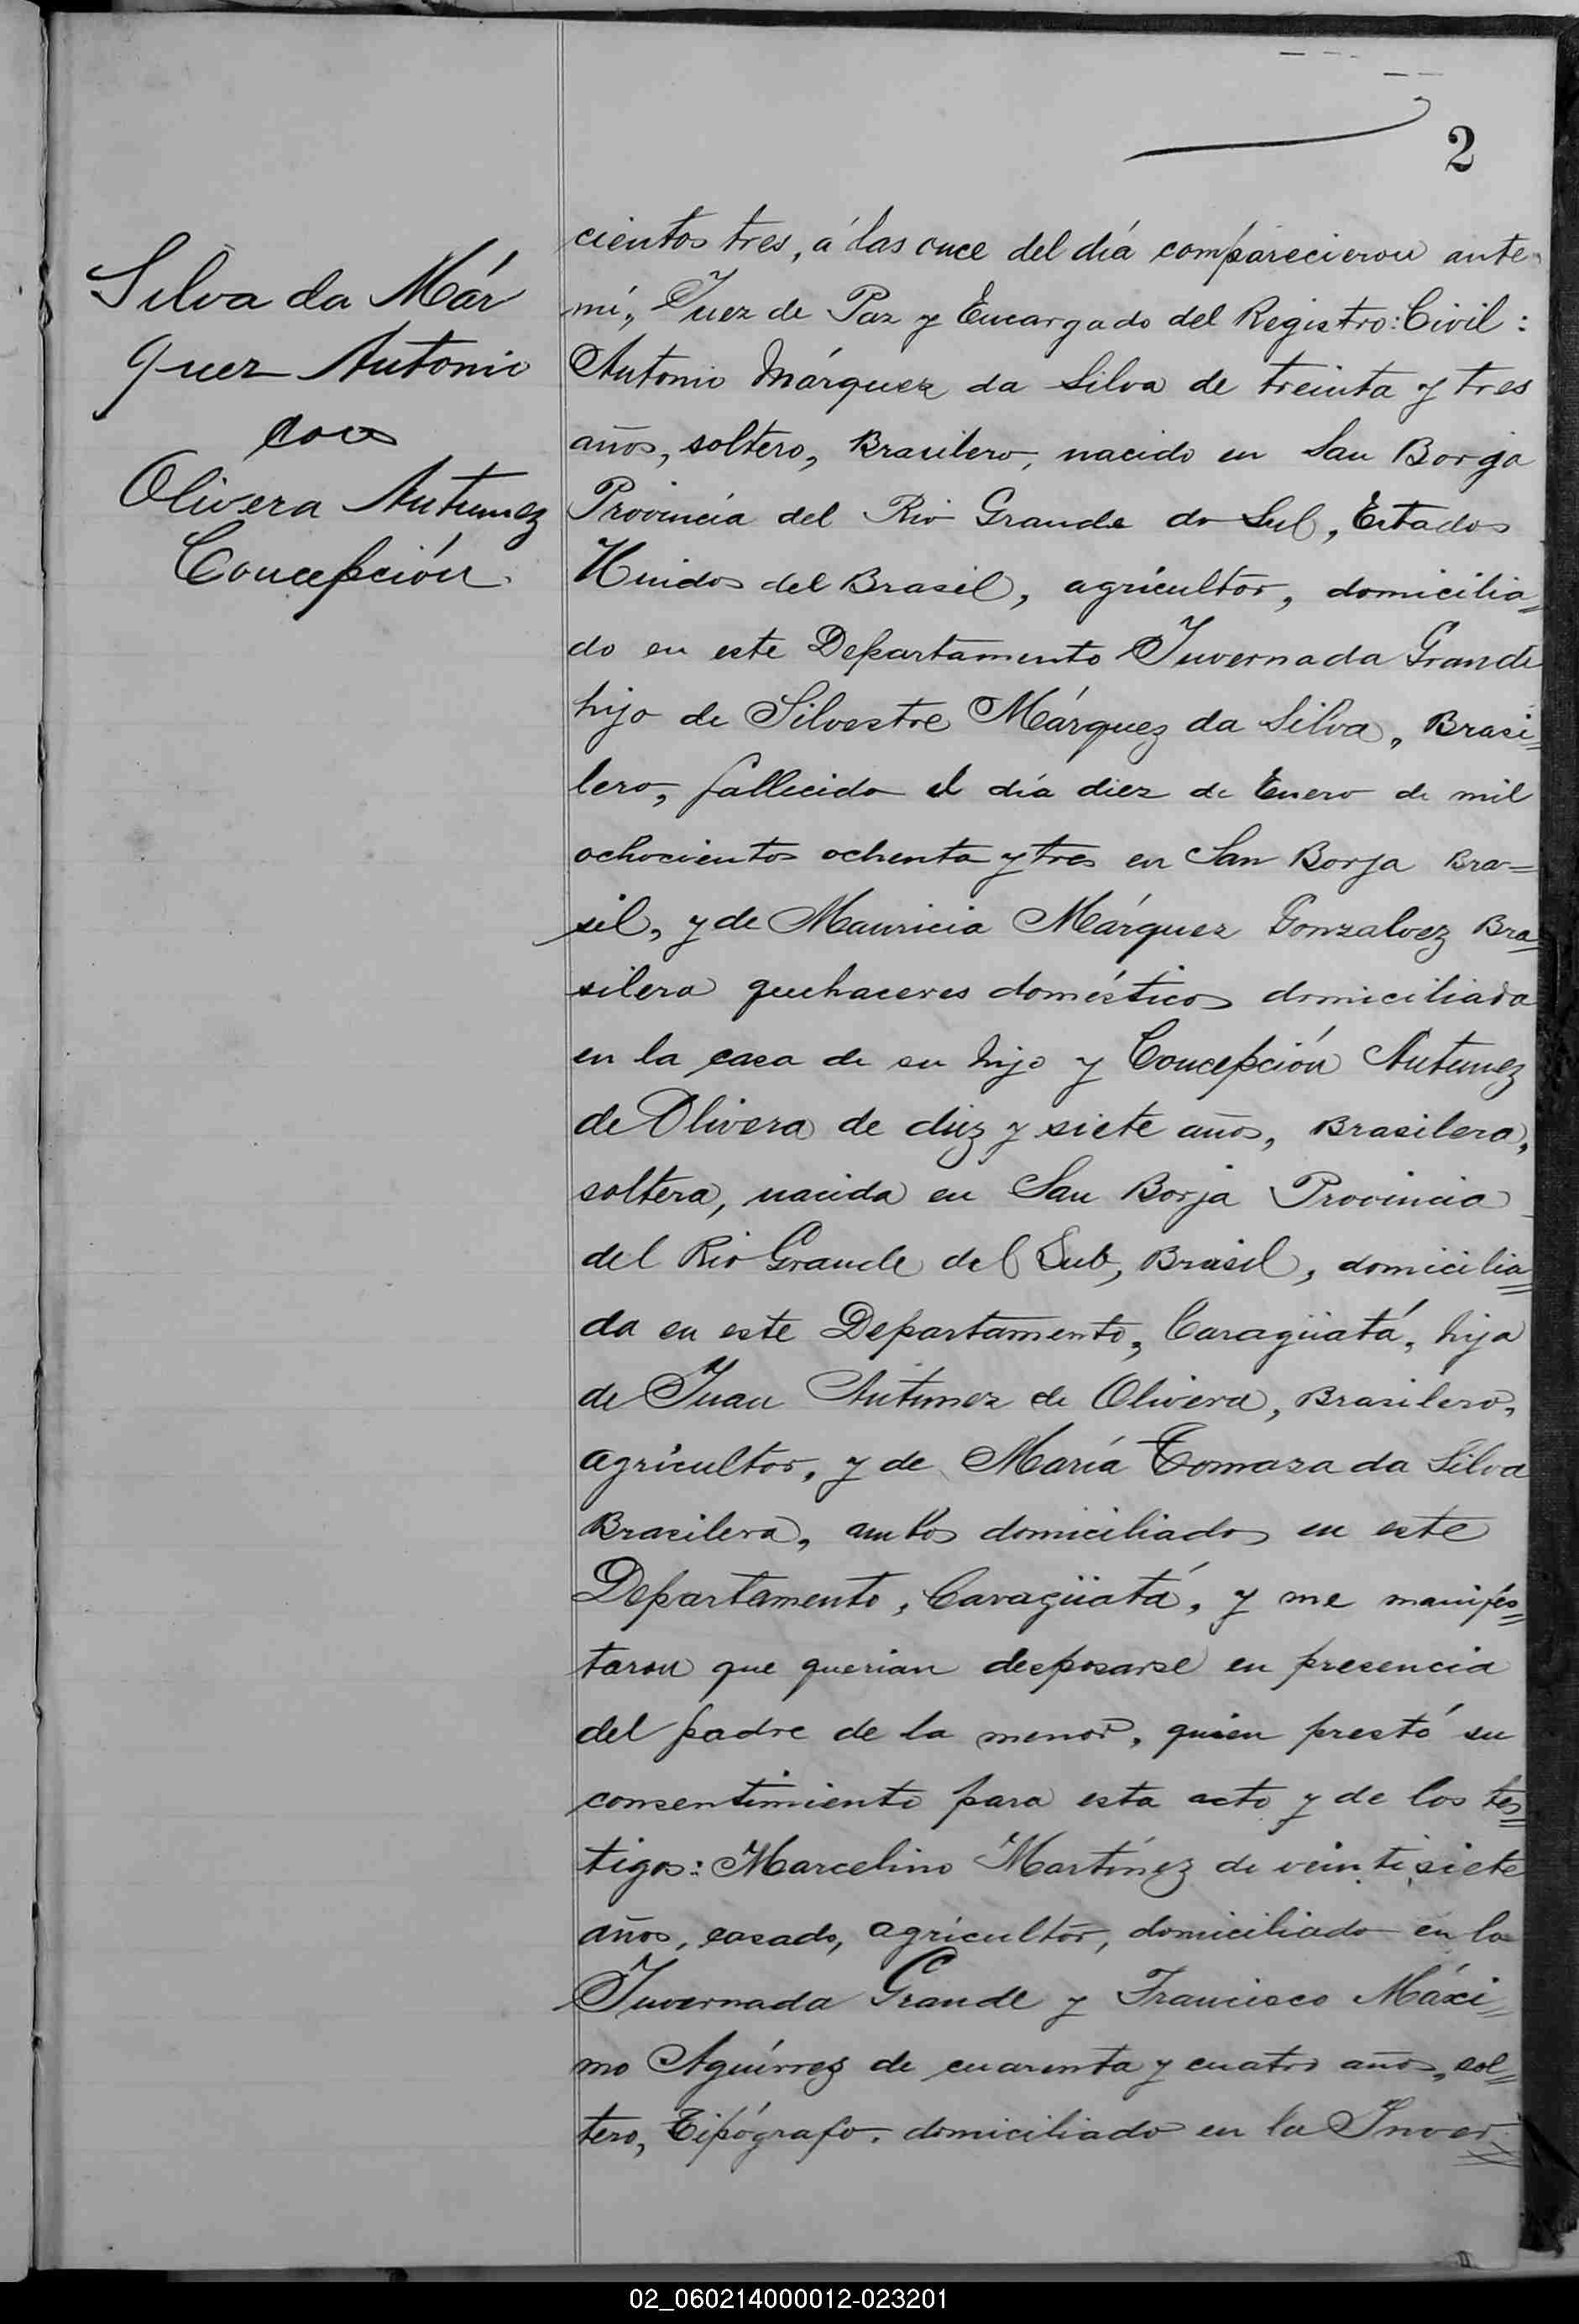 2
Silva da Már
quez Antonio
con
Olivera Antunez
Concepción
cientos tres, á las once del día comparecieron ante
mí, Juez de Paz y Encargado del Registro: Civil:
Antonio Márquez da Silva de treinta y tres
años, soltero, Brasilero, nacido en San Borja
Provincia del Rio Grande do Sul, Estados
Unidos del Brasil, agricultor, domicilia=
do en este Departamento Invernada Grande
hijo de Silvestre Márquez da Silva, Brasi=
lero, fallecido el día diez de Enero de mil
ochocientos ochenta y tres en San Borja Bra=
sil, y de Mauricia Márquez Gonzalvez Bra=
silera quehaceres domésticos domiciliada
en la casa de su hijo y Concepción Antunez
de Olivera de diez y siete años, Brasilera,
soltera, nacida en San Borja Provincia
del Rio Grande del Sub, Brasil, domicilia=
da en este Departamento, Caragüatá, hija
de Juan Antunez de Olivera, Brasilero,
agricultor, y de María Tomasa da Silva
Brasilera, ambos domiciliados en este
Departamento, Caragüatá, y me manifes=
taron que querian desposarse en presencia
del padre de la menor, quien prestó su
consentimiento para esta acto y de los tes=
tigos: Marcelino Martínez de veinti siete
años, casado, agricultor, domiciliado en la
Invernada Grande y Francisco Máxi=
mo Aguírrez de cuarenta y cuatro años, sol=
tero, Tipógrafo, domiciliado en la Inver=
02_060214000012-023201